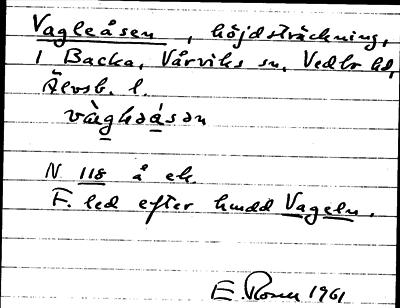 Vagleåsen, höjdsträckning,
i Backa, Vårviks sn, Vedbo hd,
Älvsb. l.
vàgləåsən
N 118 å ek.
F. led efter hmdd Vageln.
E. Rosen 1961